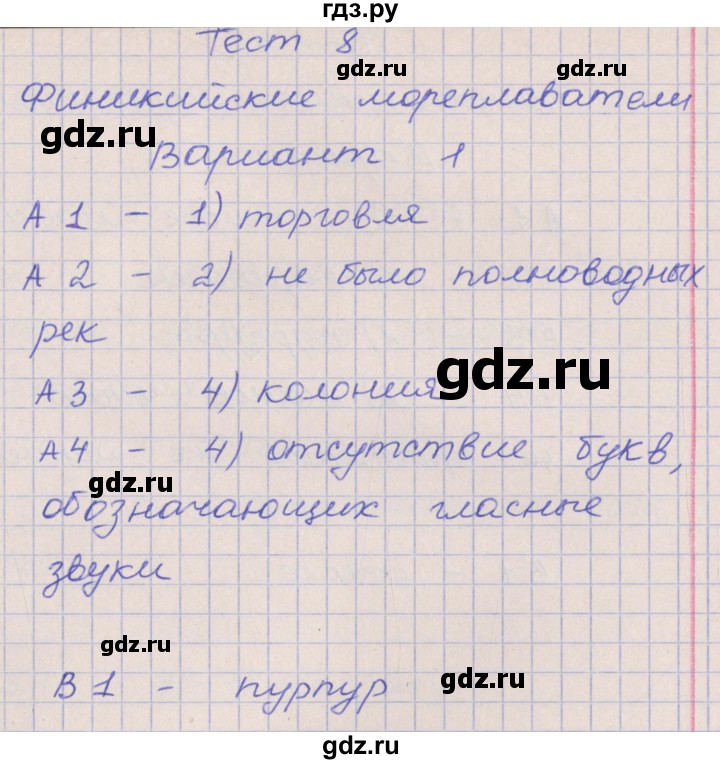 гдз.ру
Тест 8
gdz.ru
gdz.ru
Финикийские мореплаватели
gdz.ru
Вариант 1
А 1 - 1) торговля
А 2 - 2) не было полноводных
рек
gdz.ru
А 3 - 4) колония
А 4 - 4) отсутствие букв,
gdz.ru
gdz.ru
обозначающих гласные
звуки
gdz.ru
В 1 - пурпур
gdz.ru
gdz.ru